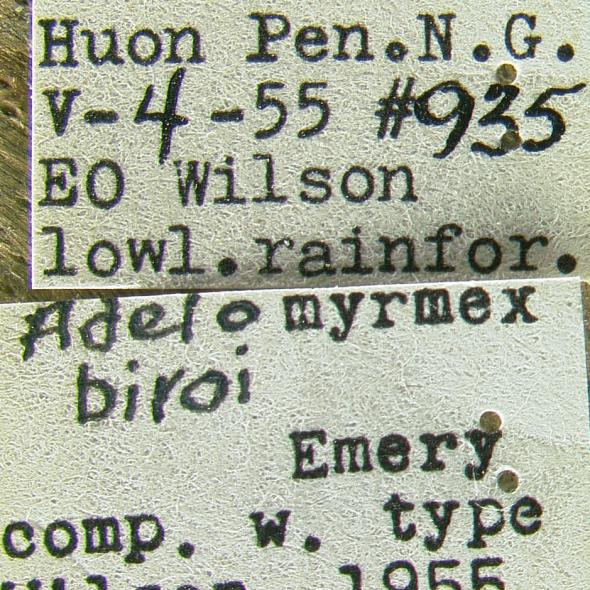 Huon Pen.N.G.
V-4-55 #935
EO Wilson
lowl.rainfor.
Adelomyrmex
biroi
Emery
comp. w. type
Wilson 1955